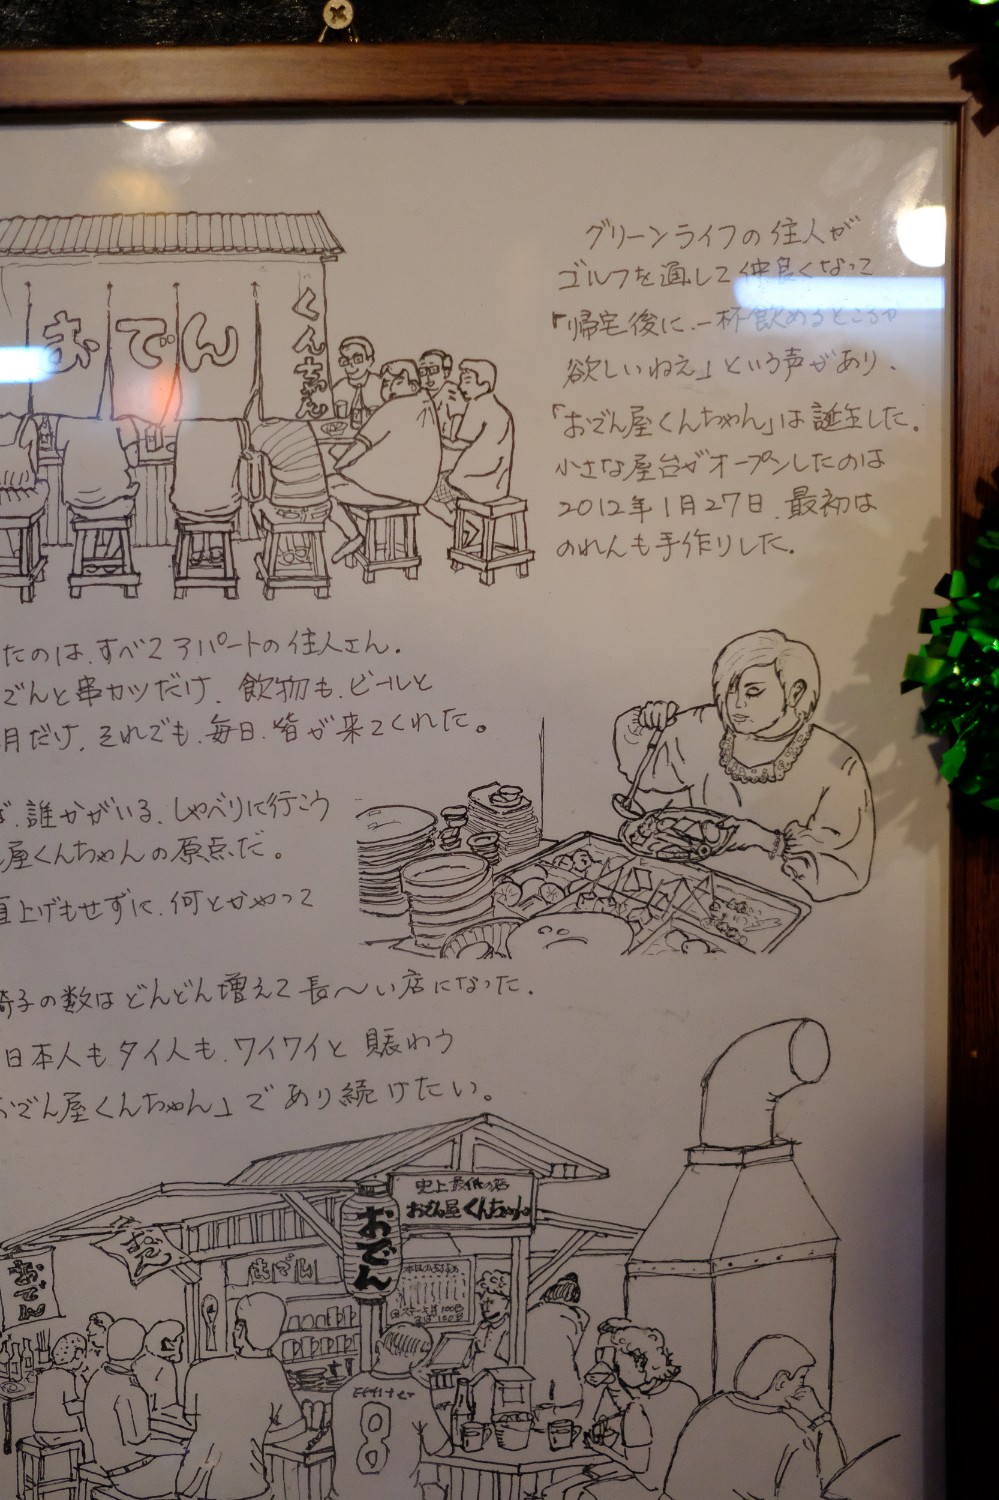 おでん
くんちゃん
グリーンライフの住人が
ゴルフを通して仲良くなって
「帰宅後に、一杯飲めるところが
欲しいねえ」という声があり、
「おでん屋くんちゃん」は誕生した。
小さな屋台がオープンしたのは
2012年1月27日、最初は
のれんも手作りした。
たのは、すべてアパートの住人さん。
でんと串カツだけ、飲物も、ビールと
月だけ、それでも、毎日、皆が来てくれた。
ば、誰かがいる、しゃべりに行こう
屋くんちゃんの原点だ。
値上げもせずに、何とかやって
椅子の数はどんどん増えて長〜い店になった。
日本人もタイ人も、ワイワイと賑わう
おでん屋くんちゃん」であり続けたい。
史上最低の店
おでん屋くんちゃん
おでん
おでん
おでん
おでん
8